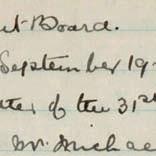 ut Board.
September 19
ter of the 31st
Mr. Michae